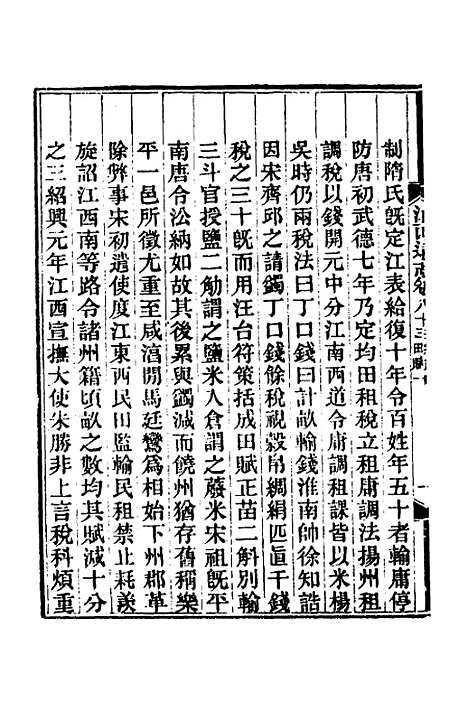 制隋氏旣定江表給復十年令百姓年五十者輸庸停
防唐初武德七年乃定均田租稅立租庸調法揚州租
調稅以錢開元中分江南西道令庸調租課皆以米楊
吳時仍兩稅法曰丁口錢曰計畝輸錢淮南帥徐知誥
因宋齊邱之請蠲丁口錢餘稅視榖帛綢絹匹直千錢
稅之三十旣而用汪台符策括成田賦正苗二斛別輸
三斗官授鹽二觔謂之鹽米入倉謂之蘈米宋祖旣平
南唐令㳂納如故其後累與蠲減而饒州猶存舊稱樂
平一邑所徵尤重至咸淳閒馬廷鸞爲相始下州郡革
除弊事宋初遣使度江東西民田監輸民租禁止耗羨
旋詔江西南等路令諸州籍頃畝之數均其賦減十分
之三紹興元年江西宣撫大使朱勝非上言稅科煩重
江西通志卷八十三 田賦一